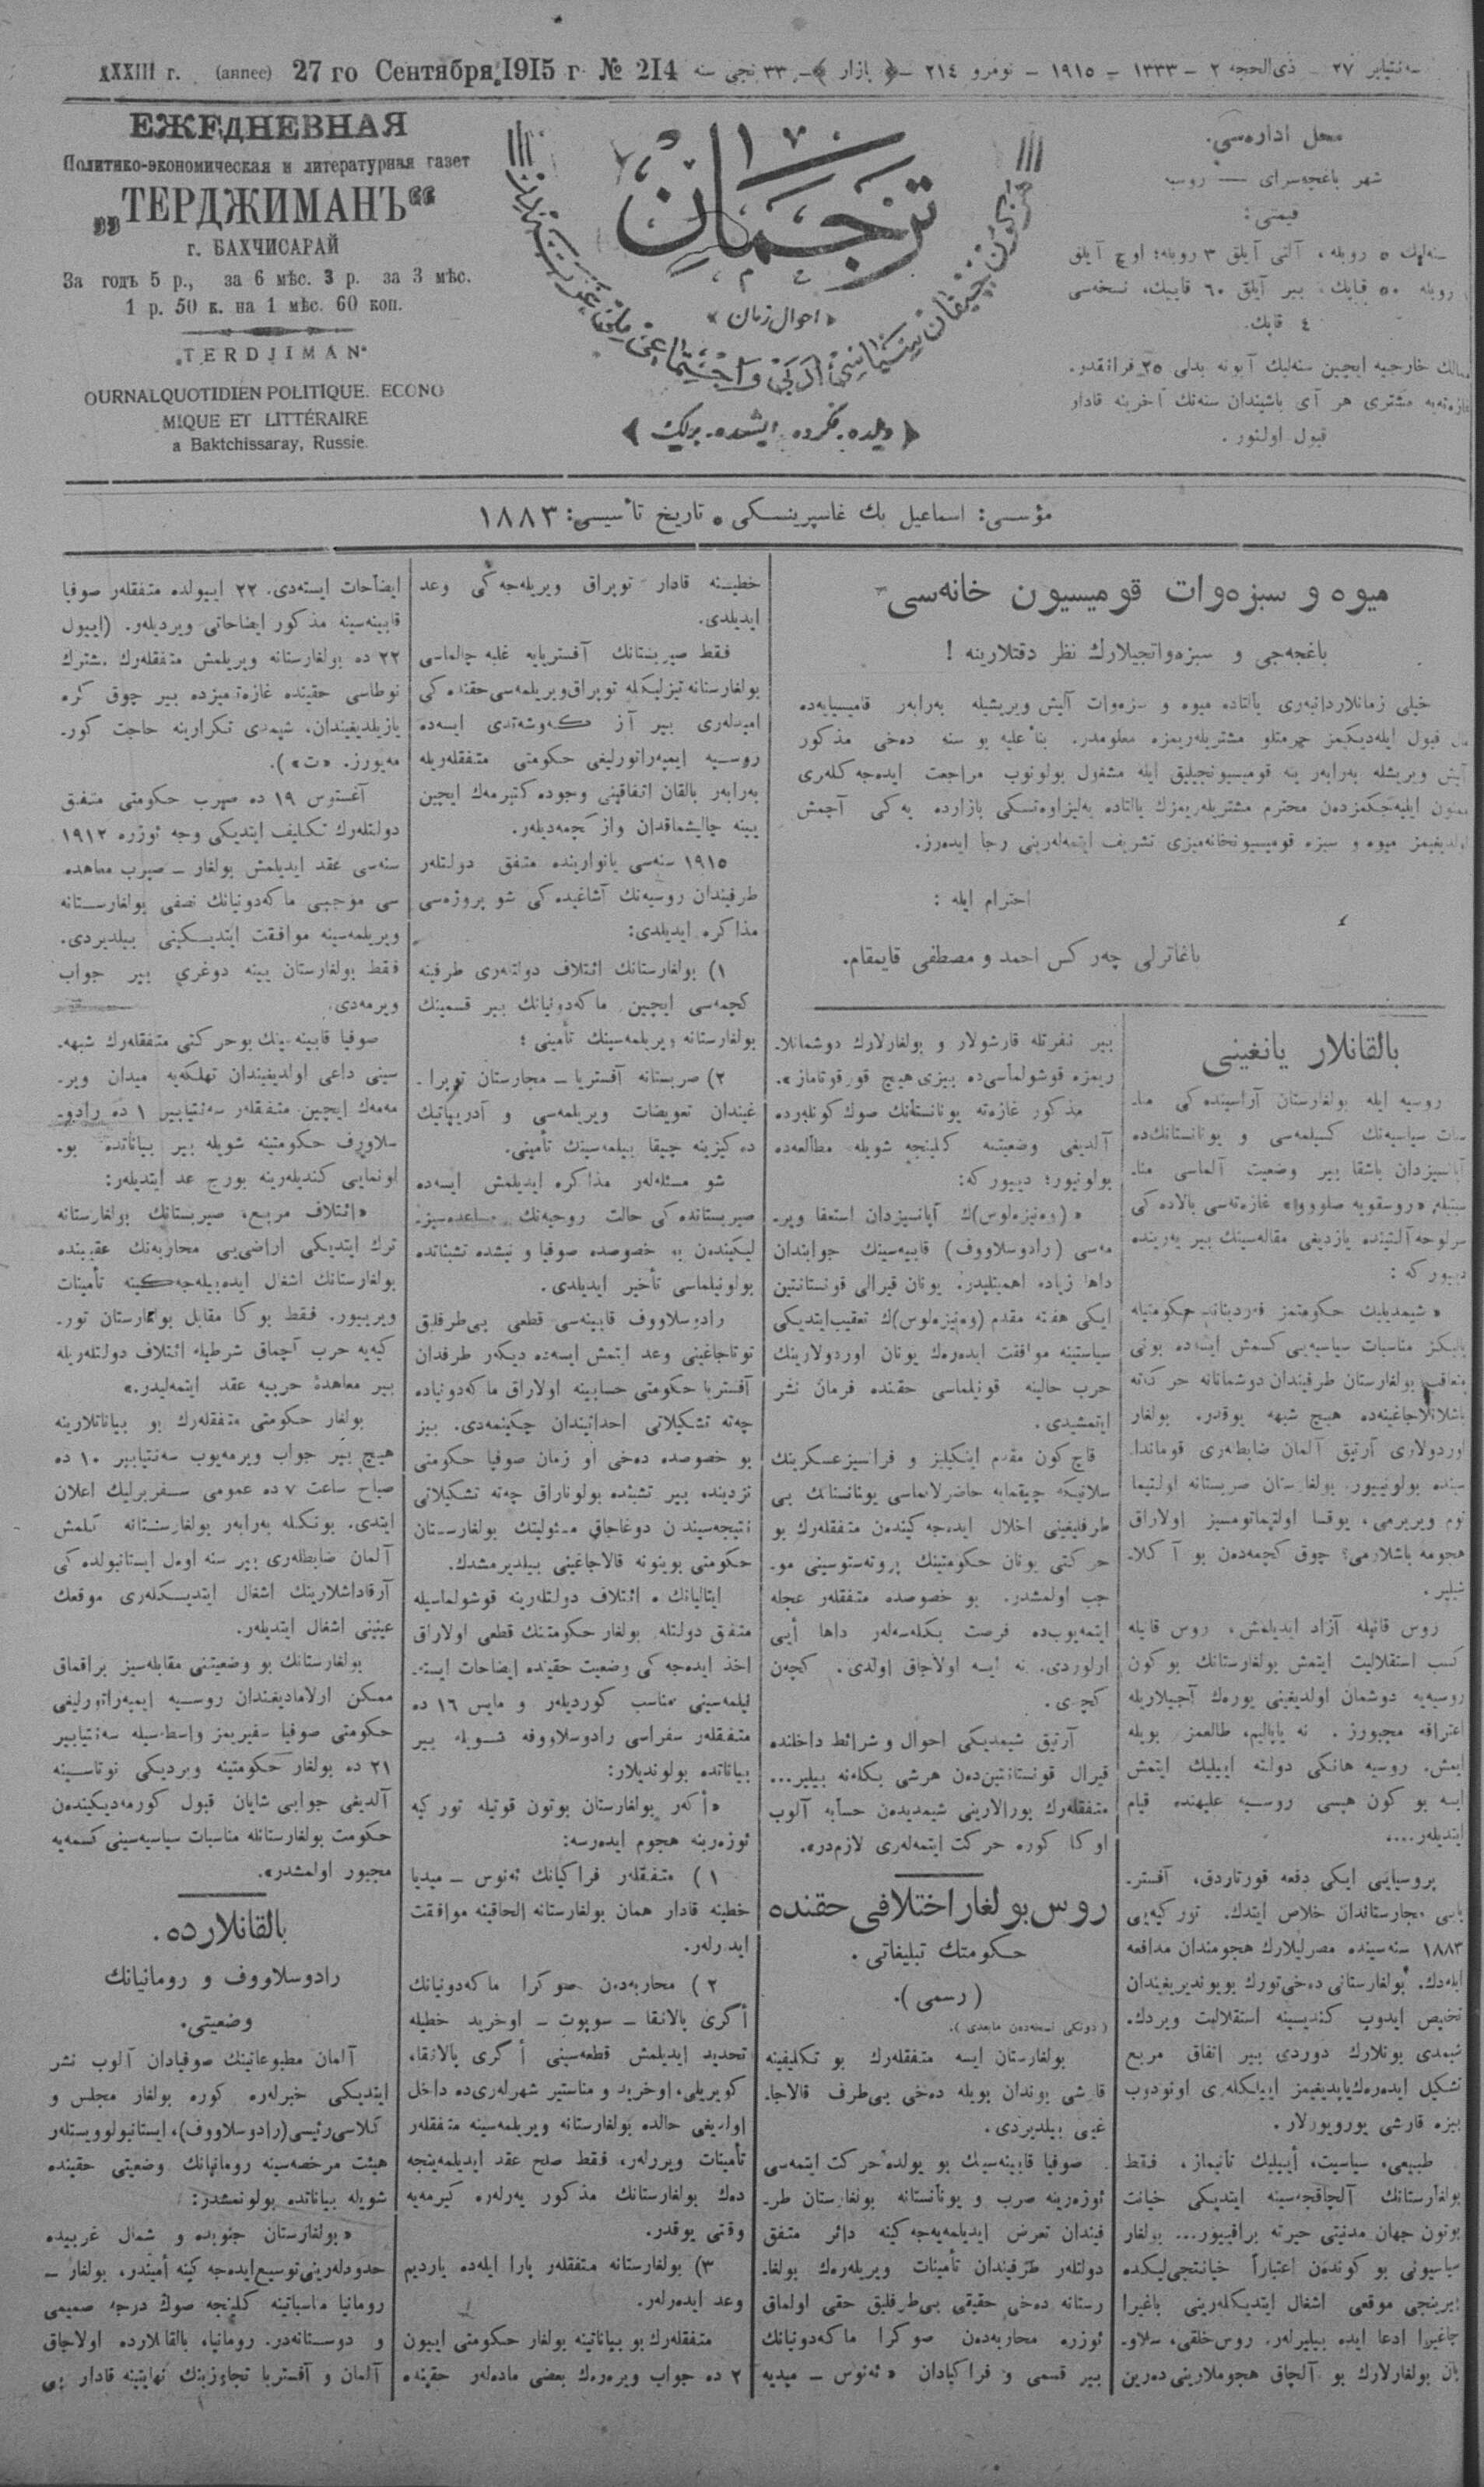 XXXIII г. (annee) 27 го Сентября 1915 г № 214 ٣٣ نجی سنه ـ﴿ بازار ﴾ـ نومرو ٢١٤ – ١٩١٥ – ذی الحجه ٢ – ١٣٣٣ سه‌نتیابر ٢٧
ЕЖЕДНЕВНАЯ
Политико-экономическая и литературная газет
„ТЕРДЖИМАНЪ“
г. БАХЧИСАРАЙ
За годъ 5 р., за 6 мѣс. 3 р. за 3 мѣс.
1 р. 50 к. на 1 мѣс. 60 коп.
„TERDJIMAN“
OURNALQUOTIDIEN POLITIQUE. ECONO
MIQUE ET LITTÉRAIRE
a Baktchissaray, Russie.
ترجمان
﴿ احوال زمان ﴾
﴿ دیلده. فکرده. ایشده. برلك ﴾
محل اداره‌سی.
شهر باغچه‌سرای — روسیه
قیمتی:
سنه‌لك ٥ روبله، آلتی آیلق ٣ روبله؛ اوچ آیلق
روبله ٥٠ قاپك، بیر آیلق ٦٠ قاپیك، نسخه‌سی
٤ قاپك.
خارجیه ایچین سنه‌لیك آبونه بدلی ٢٥ فرانقدر.
مشتری هر آی باشیندان سنه‌نك آخرینه قادار
قبول اولنور.
مؤسسی: اسماعیل بك غاسپرینسكی ٠ تاریخ تأسیسی: ١٨٨٣
میوه و سبزه‌وات قومیسیون خانه‌سی
باغچه‌جی و سبزه‌واتجیلارك نظر دقتلارینه !
خیلی زمانلاردانبه‌ری یالتاده میوه و سبزه‌وات آلیش ویریشیله به‌رابه‌ر قامیسیایه‌ده
مال قبول ایله‌دیکمز حرمتلو مشتریله‌ریمزه معلومدر. بنأ علیه بو سنه ده‌خی مذکور
آلیش ویریشله به‌رابه‌ر ینه قومیسیونجیلیق ایله مشغول بولونوب مراجعت ایده‌جه‌کله‌ری
ممنون ایلیه‌جکمزدن محترم مشتریله‌ریمزك یالتاده به‌لیزاوه‌تسکی بازارده یه‌کی آچمش
اولدیغیمز میوه و سبزه قومیسیونخانه‌میزی تشریف ایتمه‌له‌رینی رجا ایده‌رز.
احترام ایله :
باغاترلی چه‌رکس احمد و مصطفی قایمقام.
بالقانلار یانغینی
روسیه ایله بولغارستان آراسینده‌کی منا-
سبات سیاسیه‌نك کسیلمه‌سی و یونانستانك‌ده
باشقا بیر وضعیت آلماسی منا-
سرلوحه آلتینده یازدیغی مقاله‌سینك بیر یه‌رینده
دییورکه :
باشلانلاجاغینه‌ده هیچ شبهه یوقدر. بولغار
اوردولاری آرتیق آلمان ضابطه‌ری قوماندا-
سنده بولونییور. بولغارستان صربستانه اولتیما
توم ویریرمی، یوقسا اولتیماتومسز اولاراق
هجومه باشلارمی؟ چوق کچمه‌دن بو آکلا-
شیلیر .
روس قانیله آزاد ایدیلمش، روس قانیله
کسب استقلالیت ایتمش بولغارستانك بو کون
روسیه‌یه دوشمان اولدیغینی یوره‌ك آجیلاریله
اعترافه مجبورز. نه یاپالیم، طالعمز بویله
ایمش. روسیه هانکی دولته اییلیك ایتمش
ایسه بو کون هپسی روسیه علیهنده قیام
ایتدیله‌ر....
پروسیایی ایکی دفعه قورتاردق، آفستر-
یایی مجارستاندان خلاص ایتدك. تورکیه‌یی
١٨٨٣ سنه‌سینده مصرلیلارك هجومندان مدافعه
ایله‌دك. بولغارستانی ده‌خی تورك بویوندیریغیندان
تخلیص ایدوب کندیسینه استقلالیت ویردك.
شیمدی بونلارك دوردی بیر اتفاق مربع
تشکیل ایده‌ره‌ك یاپدیغیمز اییلکله‌ری اونودوب
بیزه قارشی یورویورلار.
طبیعی، سیاسیت، أییلیك تانیماز، فقط
بولغارستانك آلچاقجه‌سینه ایتدیکی خیانت
بوتون جهان مدنیتی حیرته براقییور... بولغار
سیاسیونی بو کوندەن اعتباراً خیانتجی‌لیکده
بیرینجی موقعی اشغال ایتدیکله‌رینی باغیرا
چاغیرا ادعا ایده بیلیرله‌ر. روس خلقی، سلاو-
یان بولغارلارك بو آلچاق هجوملارینی ده‌رین
بیر نفرتله قارشولار و بولغارلارك دوشمانلا-
ریمزه قوشولماسی‌ده بیزی هیچ قورقوتاماز».
مذکور غازه‌ته یونانستانك صوك کونله‌رده
آلدیغی وضعیتنه کلینجه شویله مطالعه‌ده
بولونیور؛ دییورکه:
« (وه‌نیزه‌لوس)ك آپانسیزدان استعفا ویر-
مه‌سی (رادوسلاووف) قابینه‌سینك جوابندان
داها زیاده اهمیتلیدر. یونان قیرالی قونستانتین
ایکی هفته مقدم (وه‌نیزه‌لوس)ك تعقیب‌ایتدیکی
سیاستینه موافقت ایده‌ره‌ك یونان اوردولارینك
حرب حالینه قونیلماسی حقنده فرمان نشر
ایتمشیدی.
قاچ کون مقدم اینکیلیز و فرانسیزعسکرینك
سلانیکه چیقمایه حاضرلانماسی یونانستانك بی
طرفلیغینی اخلال ایده‌جه‌کیندەن متفقله‌رك بو
حرکتی یونان حکومتینك پروته‌ستوسینی مو-
جب اولمشدر. بو خصوصده متفقله‌ر عجله
ایتمه‌یوب‌ده فرصت بکله‌سه‌له‌ر داها أیی
اولوردی. نه ایسه اولاجاق اولدی. کچه‌ن
کچدی.
آرتیق شیمدیکی احوال و شرائط داخلنده
قیرال قونستانتین‌دەن هرشی بکله‌نه بیلیر...
متفقله‌رك بورالارینی شیمدیدەن حسابه آلوب
اوکا کوره حرکت ایتمه‌له‌ری لازم‌در».
روس بولغار اختلافی حقنده
حکومتك تبلیغاتی .
(رسمی).
(دونکی نسخه‌دەن مابعدی).
بولغارستان ایسه متفقله‌رك بو تکلیفینه
قارشی بوندان بویله ده‌خی بی‌طرف قالاجا-
غنی بیلدیردی.
صوفیا قابینه‌سینك بو یولده حرکت ایتمه‌سی
ئوزه‌رینه صرب و یونانستانه بولغارستان طر-
فیندان تعرض ایدیلمه‌یه‌جه‌کینه دائر متفق
دولتله‌ر طرفیندان تأمینات ویریله‌ره‌ك بولغا-
رستانه ده‌خی حقیقی بی‌طرفلیق حقی اولماق
ئوزره محاربه‌دەن صوکرا ماکه‌دونیانك
بیر قسمی و فراکیادان « ئه‌نوس – میدیه
خطینه قادار توپراق ویریله‌جه‌کی وعد
ایدیلدی.
فقط صیربستانك آفستریایه غلبه چالماسی
بولغارستانه تیزلیکله توپراق ویریلمه‌سی حقنده‌کی
امیدله‌ری بیر آز که‌وشه‌تدی ایسه‌ده
روسیه ایمپه‌راتورلیغی حکومتی متفقله‌ریله
به‌رابه‌ر بالقان اتفاقینی وجوده کتیرمه‌ك ایچین
یینه چالیشماقدان واز کچمه‌دیله‌ر.
١٩١٥ سنه‌سی یانوارینده متفق دولتله‌ر
طرفیندان روسیه‌نك آشاغیده‌کی شو پروژه‌سی
مذاکره ایدیلدی:
١) بولغارستانك ائتلاف دولتله‌ری طرفینه
کچمه‌سی ایچین ماکه‌دونیانك بیر قسمینك
بولغارستانه ویریلمه‌سینك تأمینی ؛
٢) صربستانه آفستریا – مجارستان توپرا-
غیندان تعویضات ویریلمه‌سی و آدریاتیك
ده‌کیزینه چیقا بیلمه‌سینك تأمینی.
شو مسئله‌له‌ر مذاکره ایدیلمش ایسه‌ده
صیربستانده‌کی حالت روحیه‌نك مساعده‌سیز-
لیکیندەن بو خصوصده صوفیا و نیشده تشبثاتده
بولونیلماسی تأخیر ایدیلدی.
رادوسلاووف قابینه‌سی قطعی بی‌طرفلق
توتاجاغینی وعد ایتمش ایسه‌ده دیکه‌ر طرفدان
آفستریا حکومتی حسابینه اولاراق ماکه‌دونیاده
چه‌ته تشکیلاتی احداثیندان چکینمه‌دی. بیز
بو خصوصده ده‌خی او زمان صوفیا حکومتی
نزدینده بیر تشبثده بولوناراق چه‌ته تشکیلاتی
نتیجه‌سیندن دوغاجاق مسئولیتك بولغارستان
حکومتی بوینونه قالاجاغینی بیلدیرمشدك.
ایتالیانك ائتلاف دولتله‌رینه قوشولماسیله
متفق دولتله‌ر بولغار حکومتنك قطعی اولاراق
اخذ ایده‌جه‌کی وضعیت حقینده ایضاحات ایسته-
نیلمه‌سینی مناسب کوردیله‌ر و مایس ١٦ ده
متفقله‌ر سفراسی رادوسلاووفه شویله بیر
بیاناتده بولوندیلار:
«أكه‌ر بولغارستان بوتون قوتیله تورکیه
ئوزه‌رینه هجوم ایده‌رسه:
١) متفقله‌ر فراکیانك ئه‌نوس – میدیا
خطینه قادار همان بولغارستانه الحاقینه موافقت
ایده‌رله‌ر.
٢) محاربه‌دەن صوکرا ماکه‌دونیانك
أکری پالانقا – سوپوت – اوخرید خطیله
تحدید ایدیلمش قطعه‌سینی أکری پالانقا،
کوپریلی، اوخرید و مناستیر شهرله‌ری‌ده داخل
اولدیغی حالده بولغارستانه ویریلمه‌سینه متفقله‌ر
تأمینات ویررله‌ر، فقط صلح عقد ایدیلمه‌ینجه
ده‌ك بولغارستانك مذکور یه‌رله‌ره کیرمه‌یه
وقتی یوقدر.
٣) بولغارستانه متفقله‌ر پارا ایله‌ده یاردیم
وعد ایده‌رله‌ر.
متفقله‌رك بو بیاناتینه بولغار حکومتی اییون
٢ ده جواب ویره‌ره‌ك بعضی ماده‌له‌ر حقینده
ایضاحات ایسته‌دی. ٢٢ اییولده متفقله‌ر صوفیا
قابینه‌سینه مذکور ایضاحاتی ویردیله‌ر. (اییول
٢٢ ده بولغارستانه ویریلمش متفقله‌رك مشترك
نوطاسی حقینده غازه‌تمیزده بیر چوق کره
یازیلدیغیندان، شیمدی تکرارینه حاجت کور-
مه‌یورز. «ت»).
آغستوس ١٩ ده صیرب حکومتی متفق
دولتله‌رك تکلیف ایتدیکی وجه ئوزره ١٩١٢
سنه‌سی عقد ایدیلمش بولغار – صیرب معاهده
سی موجبی ماکه‌دونیانك نصفی بولغارستانه
ویریلمه‌سینه موافقت ایتدیکینی بیلدیردی.
فقط بولغارستان یینه دوغری بیر جواب
ویرمه‌دی.
صوفیا قابینه‌سینك بوحرکتی متفقله‌رك شبهه-
سینی داعی اولدیغیندان تهلکه‌یه میدان ویر-
مه‌مه‌ك ایچین متفقله‌ر سه‌نتیابیر ١ ده رادو-
سلاووف حکومتینه شویله بیر بیاناتده بو-
لونمایی کندیله‌رینه بورج عد ایتدیله‌ر:
«ائتلاف مربع، صیربستانك بولغارستانه
ترك ایتدیکی اراضی‌یی محاربه‌نك عقبینده
بولغارستانك اشغال ایده‌بیله‌جه‌کینه تأمینات
ویرییور. فقط بوکا مقابل بولغارستان تور-
کیه‌یه حرب آچماق شرطیله ائتلاف دولتله‌ریله
بیر معاهدۀ حربیه عقد ایتمه‌لیدر.»
بولغار حکومتی متفقله‌رك بو بیاناتلارینه
هیچ بیر جواب ویرمه‌یوب سه‌نتیابیر ١٠ ده
صباح ساعت ٧ ده عمومی سفربرلیك اعلان
ایتدی. بونکله به‌رابه‌ر بولغارستانه کلمش
آلمان ضابطله‌ری بیر سنه اوه‌ل ایستانبولده‌کی
آرقاداشلارینك اشغال ایتدیکله‌ری موقعك
عینینی اشغال ایتدیله‌ر.
بولغارستانك بو وضعیتنی مقابله‌سیز براقماق
ممکن اولامادیغندان روسیه ایمپه‌راتورلیغی
حکومتی صوفیا سفیریمز واسطه‌سیله سه‌نتیابیر
٢١ ده بولغار حکومتینه ویردیکی نوتاسینه
آلدیغی جوابی شایان قبول کورمه‌دیکیندەن
حکومت بولغارستانله مناسبات سیاسیه‌سینی کسمه‌یه
مجبور اولمشدر».
بالقانلارده .
رادوسلاووف و رومانیانك
وضعیتی.
آلمان مطبوعاتینك صوفیادان آلوب نشر
ایتدیکی خبرله‌ره کوره بولغار مجلس و
کلاسی رئیسی (رادوسلاووف)، ایستانبولوویستله‌ر
هیئت مرخصه‌سینه رومانیانك وضعیتی حقینده
شویله بیاناتده بولونمشدر:
«بولغارستان جنوبده و شمال غربیده
حدودله‌رینی توسیع ایده‌جه‌کینه أمیندر، بولغار –
رومانیا مناسباتینه کلینجه صوك درجه صمیمی
و دوستانه‌در. رومانیا، بالقانلارده اولاجاق
آلمان و آفستریا تجاوزینك نهایتینه قادار بی